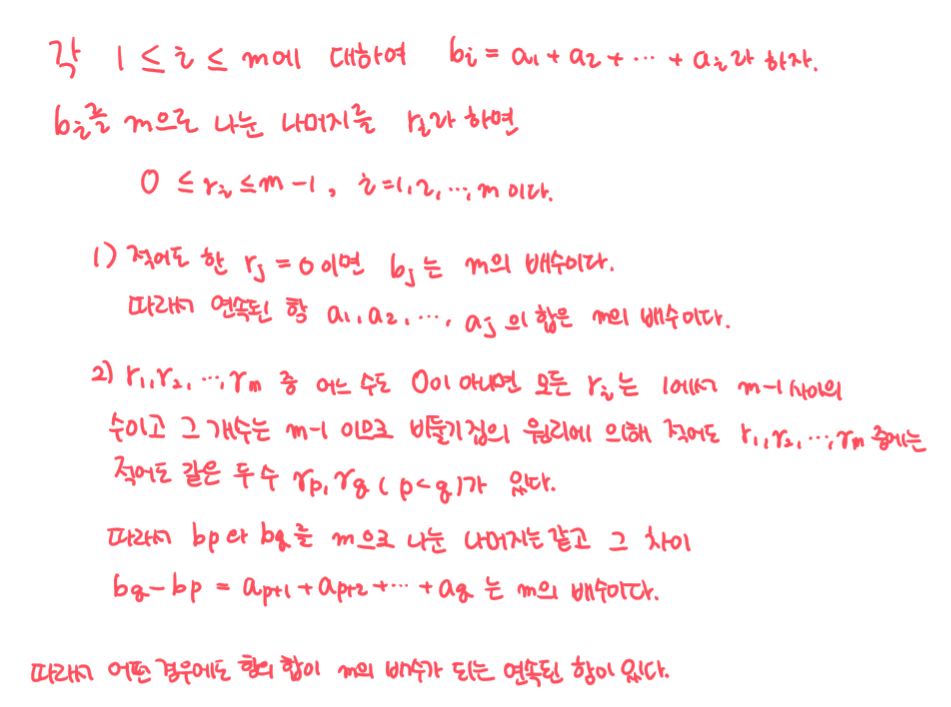 각 1 ≤ i ≤ m에 대하여 bᵢ = a₁ + a₂ + ⋯ + aᵢ라 하자.
bᵢ를 m으로 나눈 나머지를 rᵢ라 하면
0 ≤ rᵢ ≤ m-1, i=1,2,⋯,m 이다.
1) 적어도 한 rⱼ = 0 이면 bⱼ는 m의 배수이다.
따라서 연속된 항 a₁, a₂, ⋯, aⱼ의 합은 m의 배수이다.
2) r₁, r₂, ⋯, rₘ 중 어느 수도 0이 아니면 모든 rᵢ는 1에서 m-1 사이의
수이고 그 개수는 m-1 이므로 비둘기집의 원리에 의해 적어도 r₁, r₂, ⋯, rₘ 중에는
적어도 같은 두 수 r_p, r_q (p<q)가 있다.
따라서 b_p와 b_q를 m으로 나눈 나머지는 같고 그 차이
b_q - b_p = a_{p+1} + a_{p+2} + ⋯ + a_q 는 m의 배수이다.
따라서 어떤 경우에도 항의 합이 m의 배수가 되는 연속된 항이 있다.